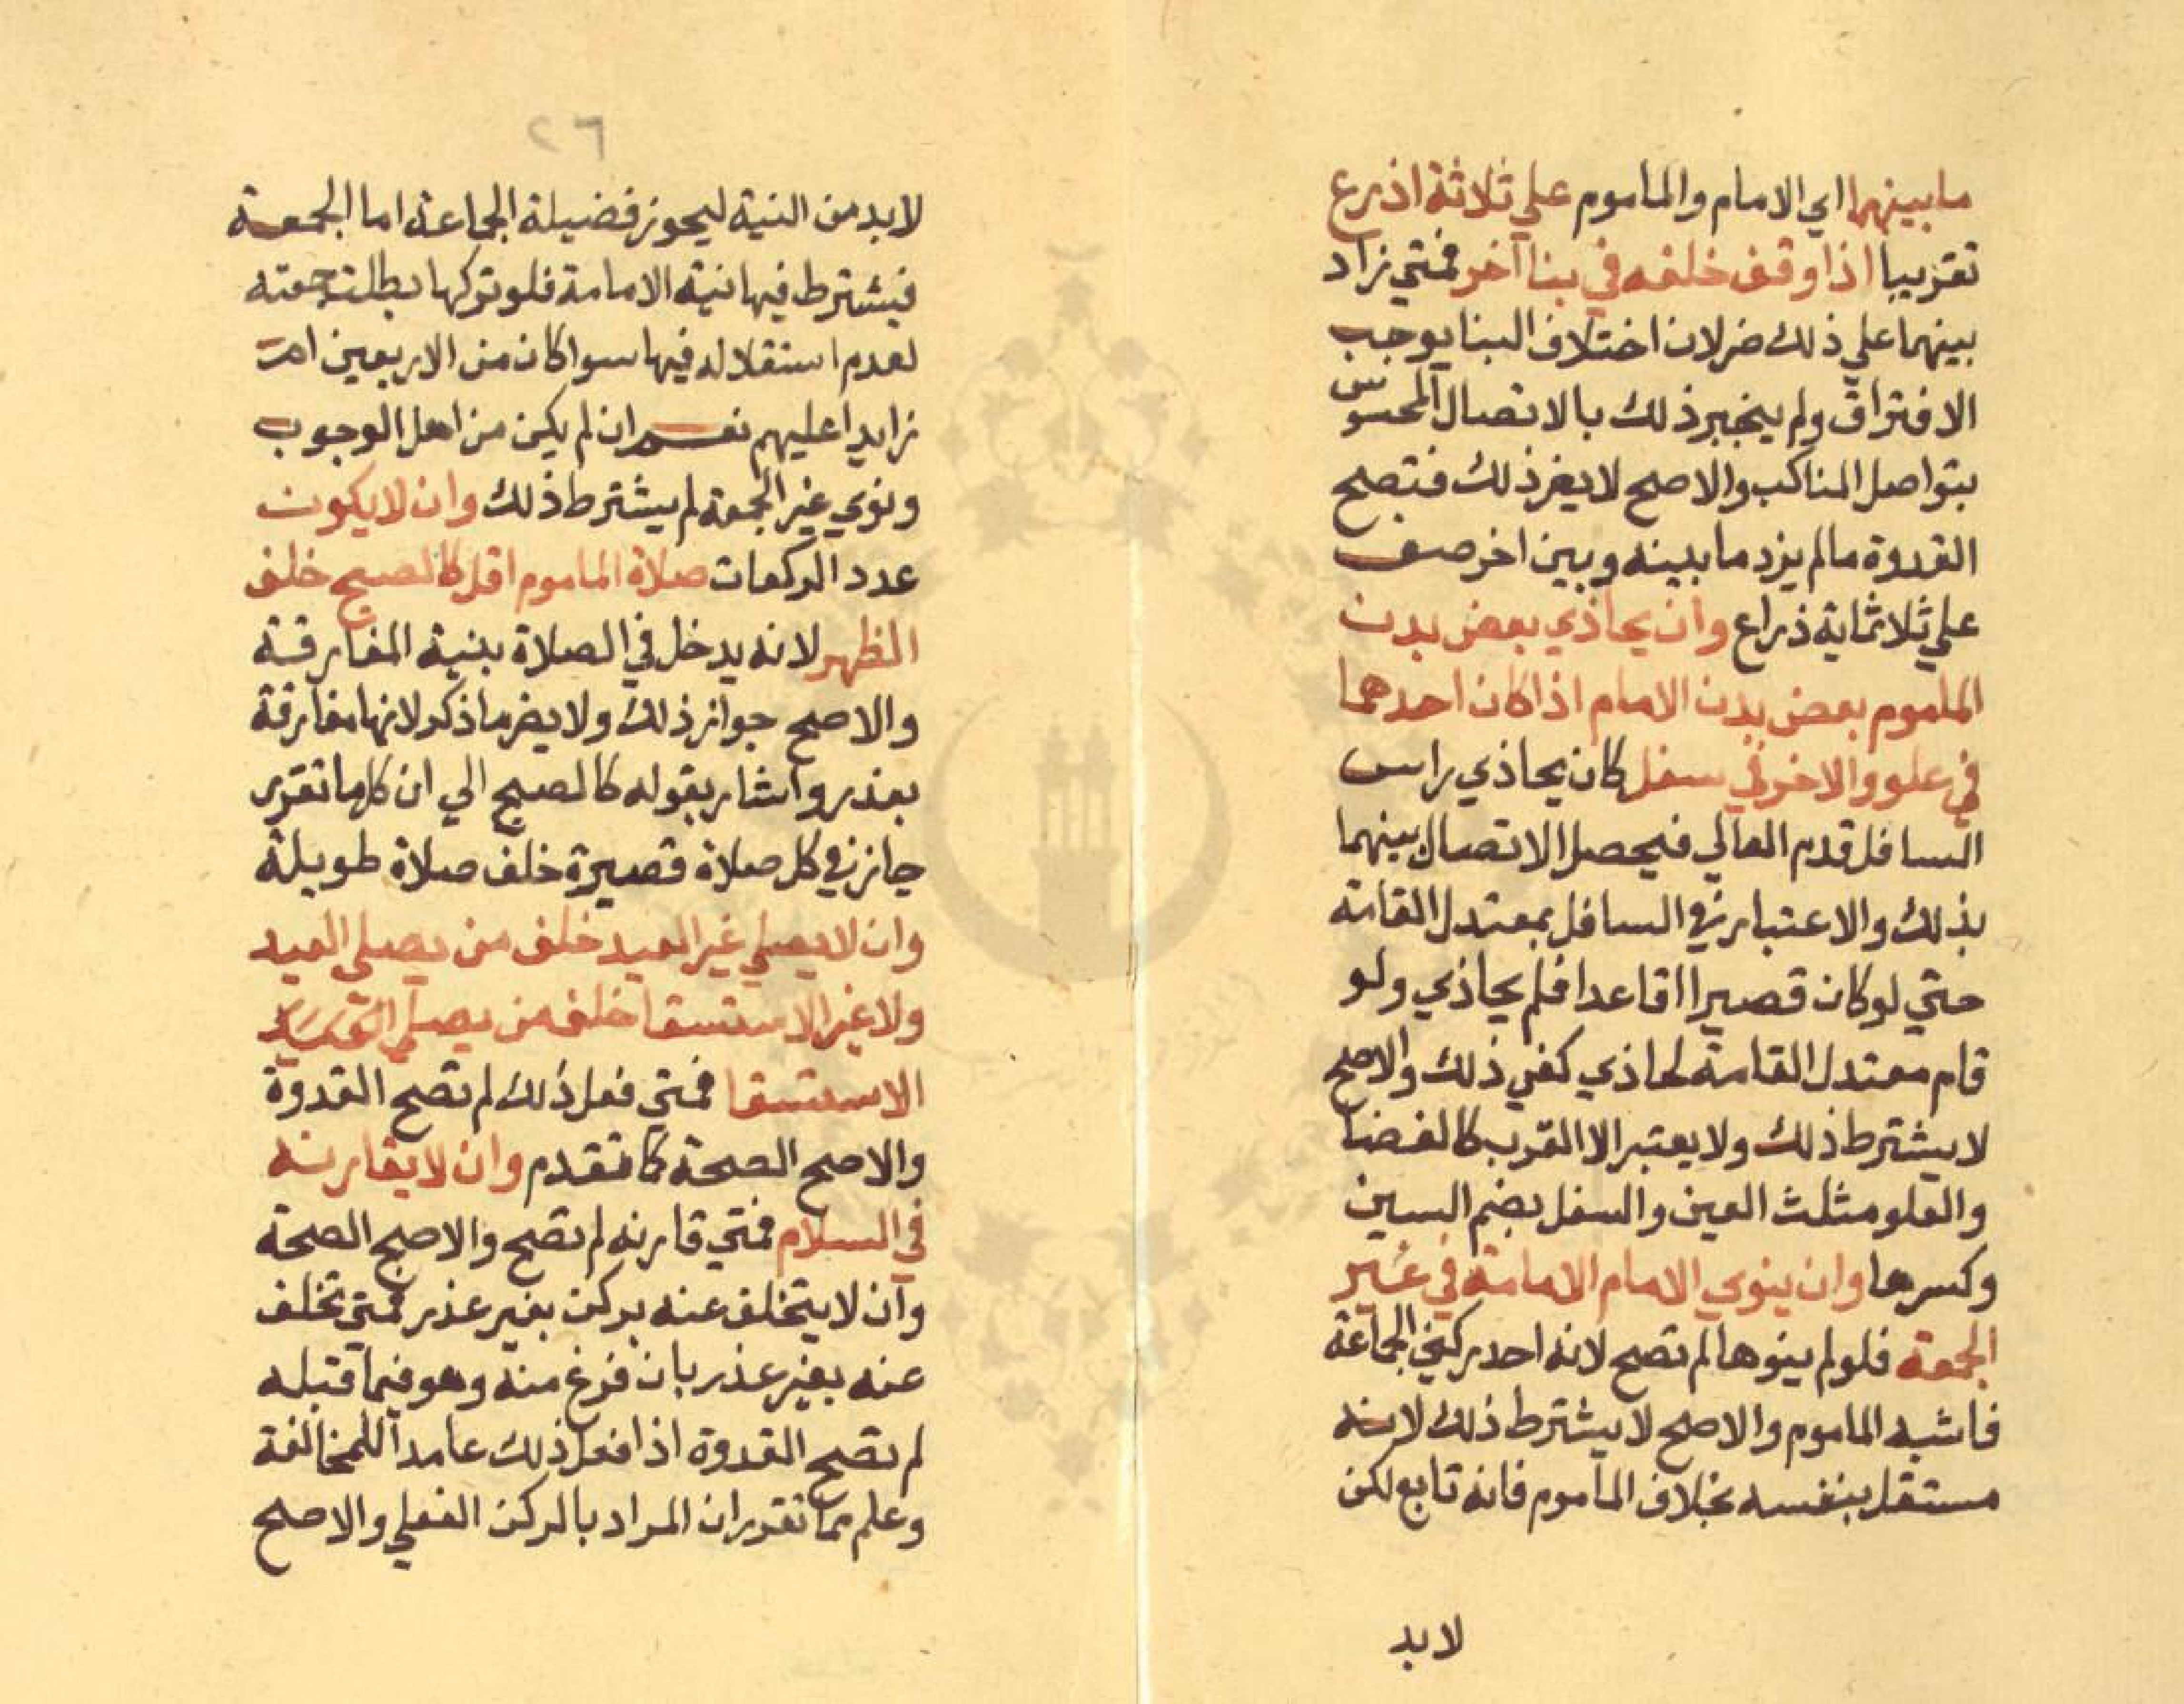 مابينهما اي الامام والماموم علي ثلاثة اذرع
تقريبا اذا وقف خلفه في بنا آخر فمتي زاد
بينهما علي ذلك ضر لان اختلاف البنا يوجب
الافتراق ولم ينجبر ذلك بالاتصال المحسوس
بتواصل المناكب والاصح لا يضر ذلك فتصح
القدوة مالم يزد مابينه وبين اخر صف
علي ثلاثماية ذراع وان يحاذي بعض بدن
الماموم بعض بدن الامام اذا كان احدهما
في علو والاخر في سفل كان يحاذي راس
السافل قدم العالي فيحصل الاتصال بينهما
بذلك والاعتبار في السافل بمعتدل القامة
حتي لو كان قصيرا اقاعدا فلم يحاذي ولو
قام معتدل القامة لحاذي كفي ذلك والاصح
لا يشترط ذلك ولا يعتبر الا القرب كالفضا
والعلو مثلث العين والسفل بضم السين
وكسرها وان ينوي الامام الامامة في غير
الجمعة فلو لم ينوها لم تصح لانه احد ركني الجماعة
فاشبه الماموم والاصح لا يشترط ذلك لانه
مستقل بنفسه بخلاف الماموم فانه تابع لكن
لابد
٢٦
لابد من النية ليحوز فضيلة الجماعة اما الجمعة
فيشترط فيها نية الامامة فلو تركها بطلت جمعته
لعدم استقلاله فيها سوا كان من الاربعين ام
زايدا عليهم نعم ان لم يكن من اهل الوجوب
ونوي غير الجمعة لم يشترط ذلك وان لا يكون
عدد الركعات صلاة الماموم اقل كالصبح خلف
الظهر لانه يدخل في الصلاة بنية المفارقة
والاصح جواز ذلك ولا يضر ماذكر لانها مفارقة
بعذر واشار بقوله كالصبح الي ان كلما تقرر
جائز في كل صلاة قصيرة خلف صلاة طويلة
وان لا يصلي غير العيد خلف من يصلي العيد
ولا غير الاستسقا خلف من يصلي
الاستسقا فمتي فعل ذلك لم تصح القدوة
والاصح الصحة كما تقدم وان لا يقارنه
في السلام فمتي قارنه لم تصح والاصح الصحة
وان لا يتخلف عنه بركن بغير عذر فمتي تخلف
عنه بغير عذر بان فرغ منه وهو فيما قبله
لم تصح القدوة اذا فعل ذلك عامدا للمخالفة
وعلم مما تقرر ان المراد بالركن الفعلي والاصح